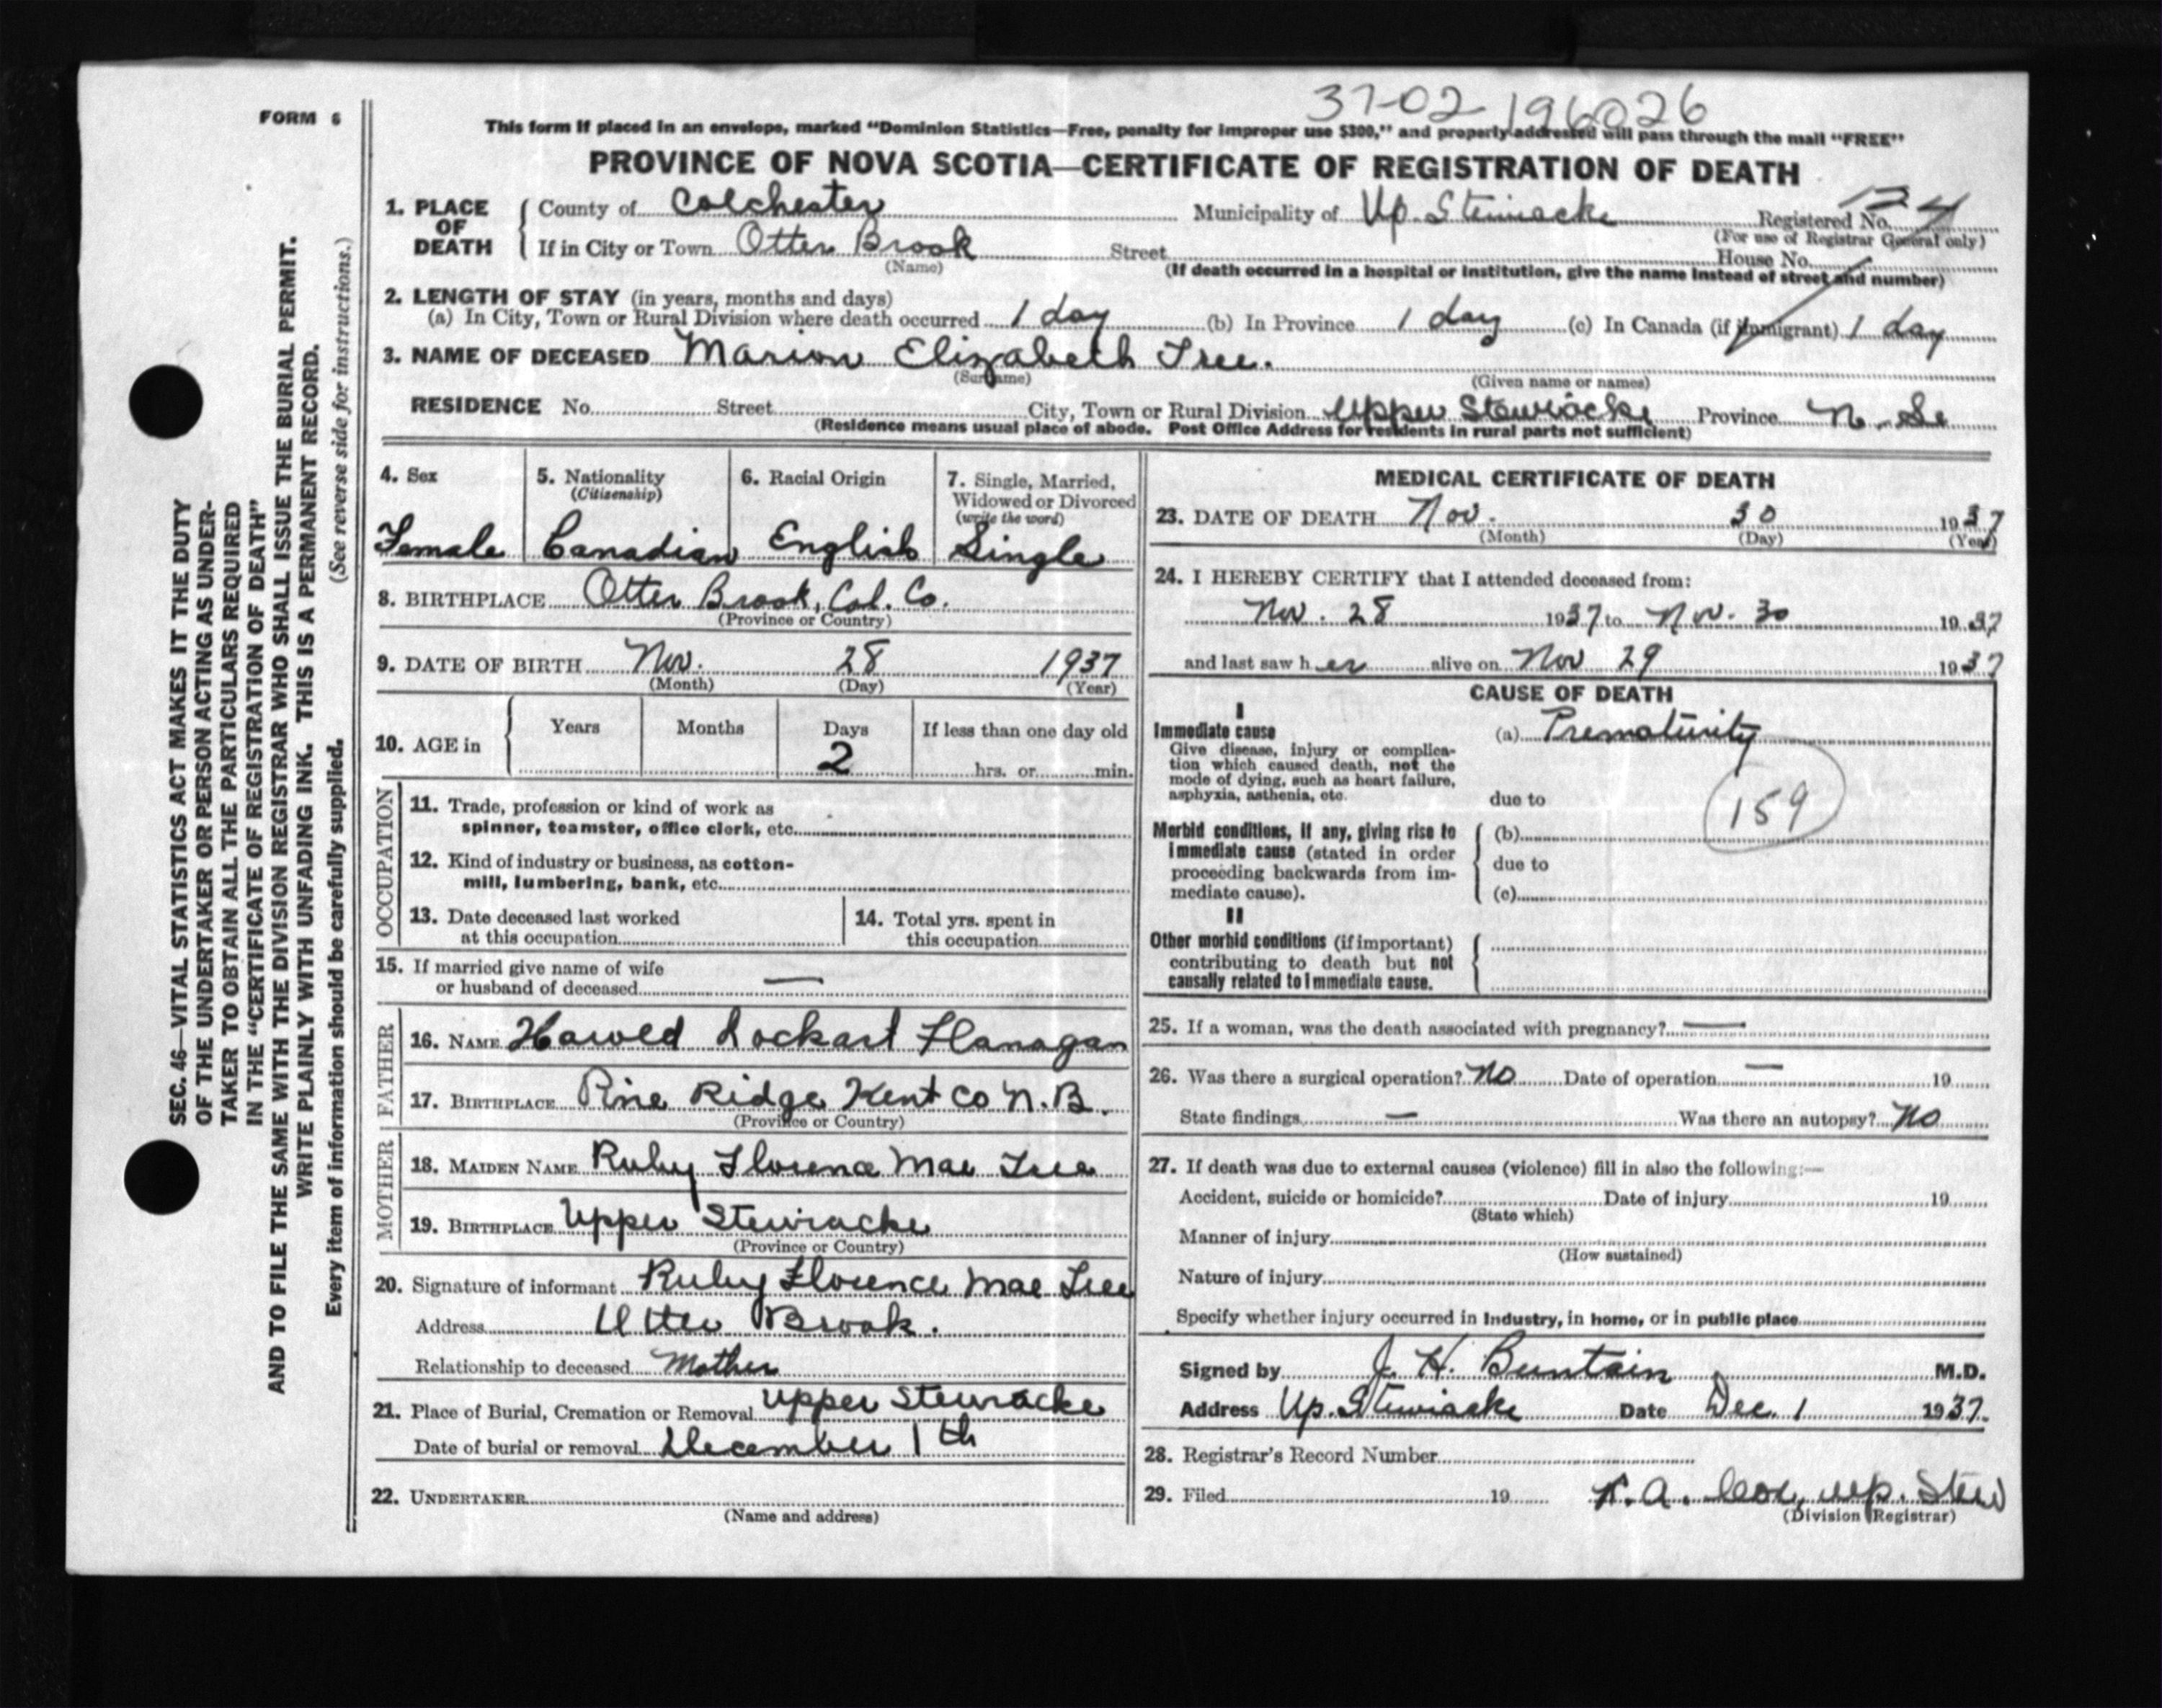 37-02 196026
FORM 6
This form if placed in an envelope, marked "Dominion Statistics—Free, penalty for improper use $300," and properly addressed will pass through the mail "FREE"
PROVINCE OF NOVA SCOTIA—CERTIFICATE OF REGISTRATION OF DEATH
1. PLACE OF DEATH County of Colchester Municipality of Up. Stewiacke Registered No.
(For use of Registrar General only)
If in City or Town Otter Brook Street House No.
(Name) (If death occurred in a hospital or institution, give the name instead of street and number)
2. LENGTH OF STAY (in years, months and days)
(a) In City, Town or Rural Division where death occurred 1 day (b) In Province 1 day (c) In Canada (if immigrant) 1 day
3. NAME OF DECEASED Marion Elizabeth Tree.
(Surname) (Given name or names)
RESIDENCE No. Street City, Town or Rural Division Upper Stewiacke Province N. S.
(Residence means usual place of abode. Post Office Address for residents in rural parts not sufficient)
4. Sex 5. Nationality 6. Racial Origin 7. Single, Married,
(Citizenship) Widowed or Divorced
(write the word)
Female Canadian English Single
8. BIRTHPLACE Otter Brook, Col. Co.
(Province or Country)
9. DATE OF BIRTH Nov. 28 1937
(Month) (Day) (Year)
10. AGE in Years Months Days If less than one day old
2 hrs. or min.
OCCUPATION
11. Trade, profession or kind of work as
spinner, teamster, office clerk, etc.
12. Kind of industry or business, as cotton-
mill, lumbering, bank, etc.
13. Date deceased last worked
at this occupation
14. Total yrs. spent in
this occupation
15. If married give name of wife
or husband of deceased —
FATHER
16. NAME Harold Lockart Flanagan
17. BIRTHPLACE Pine Ridge Kent Co N.B.
(Province or Country)
MOTHER
18. MAIDEN NAME Ruby Florence Mae Tree
19. BIRTHPLACE Upper Stewiacke
(Province or Country)
20. Signature of informant Ruby Florence Mae Tree
Address Otter Brook.
Relationship to deceased Mother
21. Place of Burial, Cremation or Removal Upper Stewiacke
Date of burial or removal December 1th
22. UNDERTAKER
(Name and address)
MEDICAL CERTIFICATE OF DEATH
23. DATE OF DEATH Nov. 30 1937
(Month) (Day) (Year)
24. I HEREBY CERTIFY that I attended deceased from:
Nov. 28 1937 to Nov. 30 1937
and last saw her alive on Nov 29 1937
CAUSE OF DEATH
I
Immediate cause (a) Prematurity
Give disease, injury or complica-
tion which caused death, not the
mode of dying, such as heart failure,
asphyxia, asthenia, etc. due to
159
Morbid conditions, if any, giving rise to (b)
immediate cause (stated in order
proceeding backwards from im- due to
mediate cause). (c)
II
Other morbid conditions (if important)
contributing to death but not
causally related to immediate cause.
25. If a woman, was the death associated with pregnancy? —
26. Was there a surgical operation? No Date of operation — 19
State findings — Was there an autopsy? No
27. If death was due to external causes (violence) fill in also the following:—
Accident, suicide or homicide? Date of injury 19
(State which)
Manner of injury
(How sustained)
Nature of injury
Specify whether injury occurred in industry, in home, or in public place
Signed by J. H. Buntain M.D.
Address Up. Stewiacke Date Dec. 1 1937.
28. Registrar's Record Number
29. Filed 19 Up. Stew
(Division Registrar)
SEC. 46—VITAL STATISTICS ACT MAKES IT THE DUTY
OF THE UNDERTAKER OR PERSON ACTING AS UNDER-
TAKER TO OBTAIN ALL THE PARTICULARS REQUIRED
IN THE "CERTIFICATE OF REGISTRATION OF DEATH"
AND TO FILE THE SAME WITH THE DIVISION REGISTRAR WHO SHALL ISSUE THE BURIAL PERMIT.
WRITE PLAINLY WITH UNFADING INK. THIS IS A PERMANENT RECORD.
Every item of information should be carefully supplied. (See reverse side for instructions.)